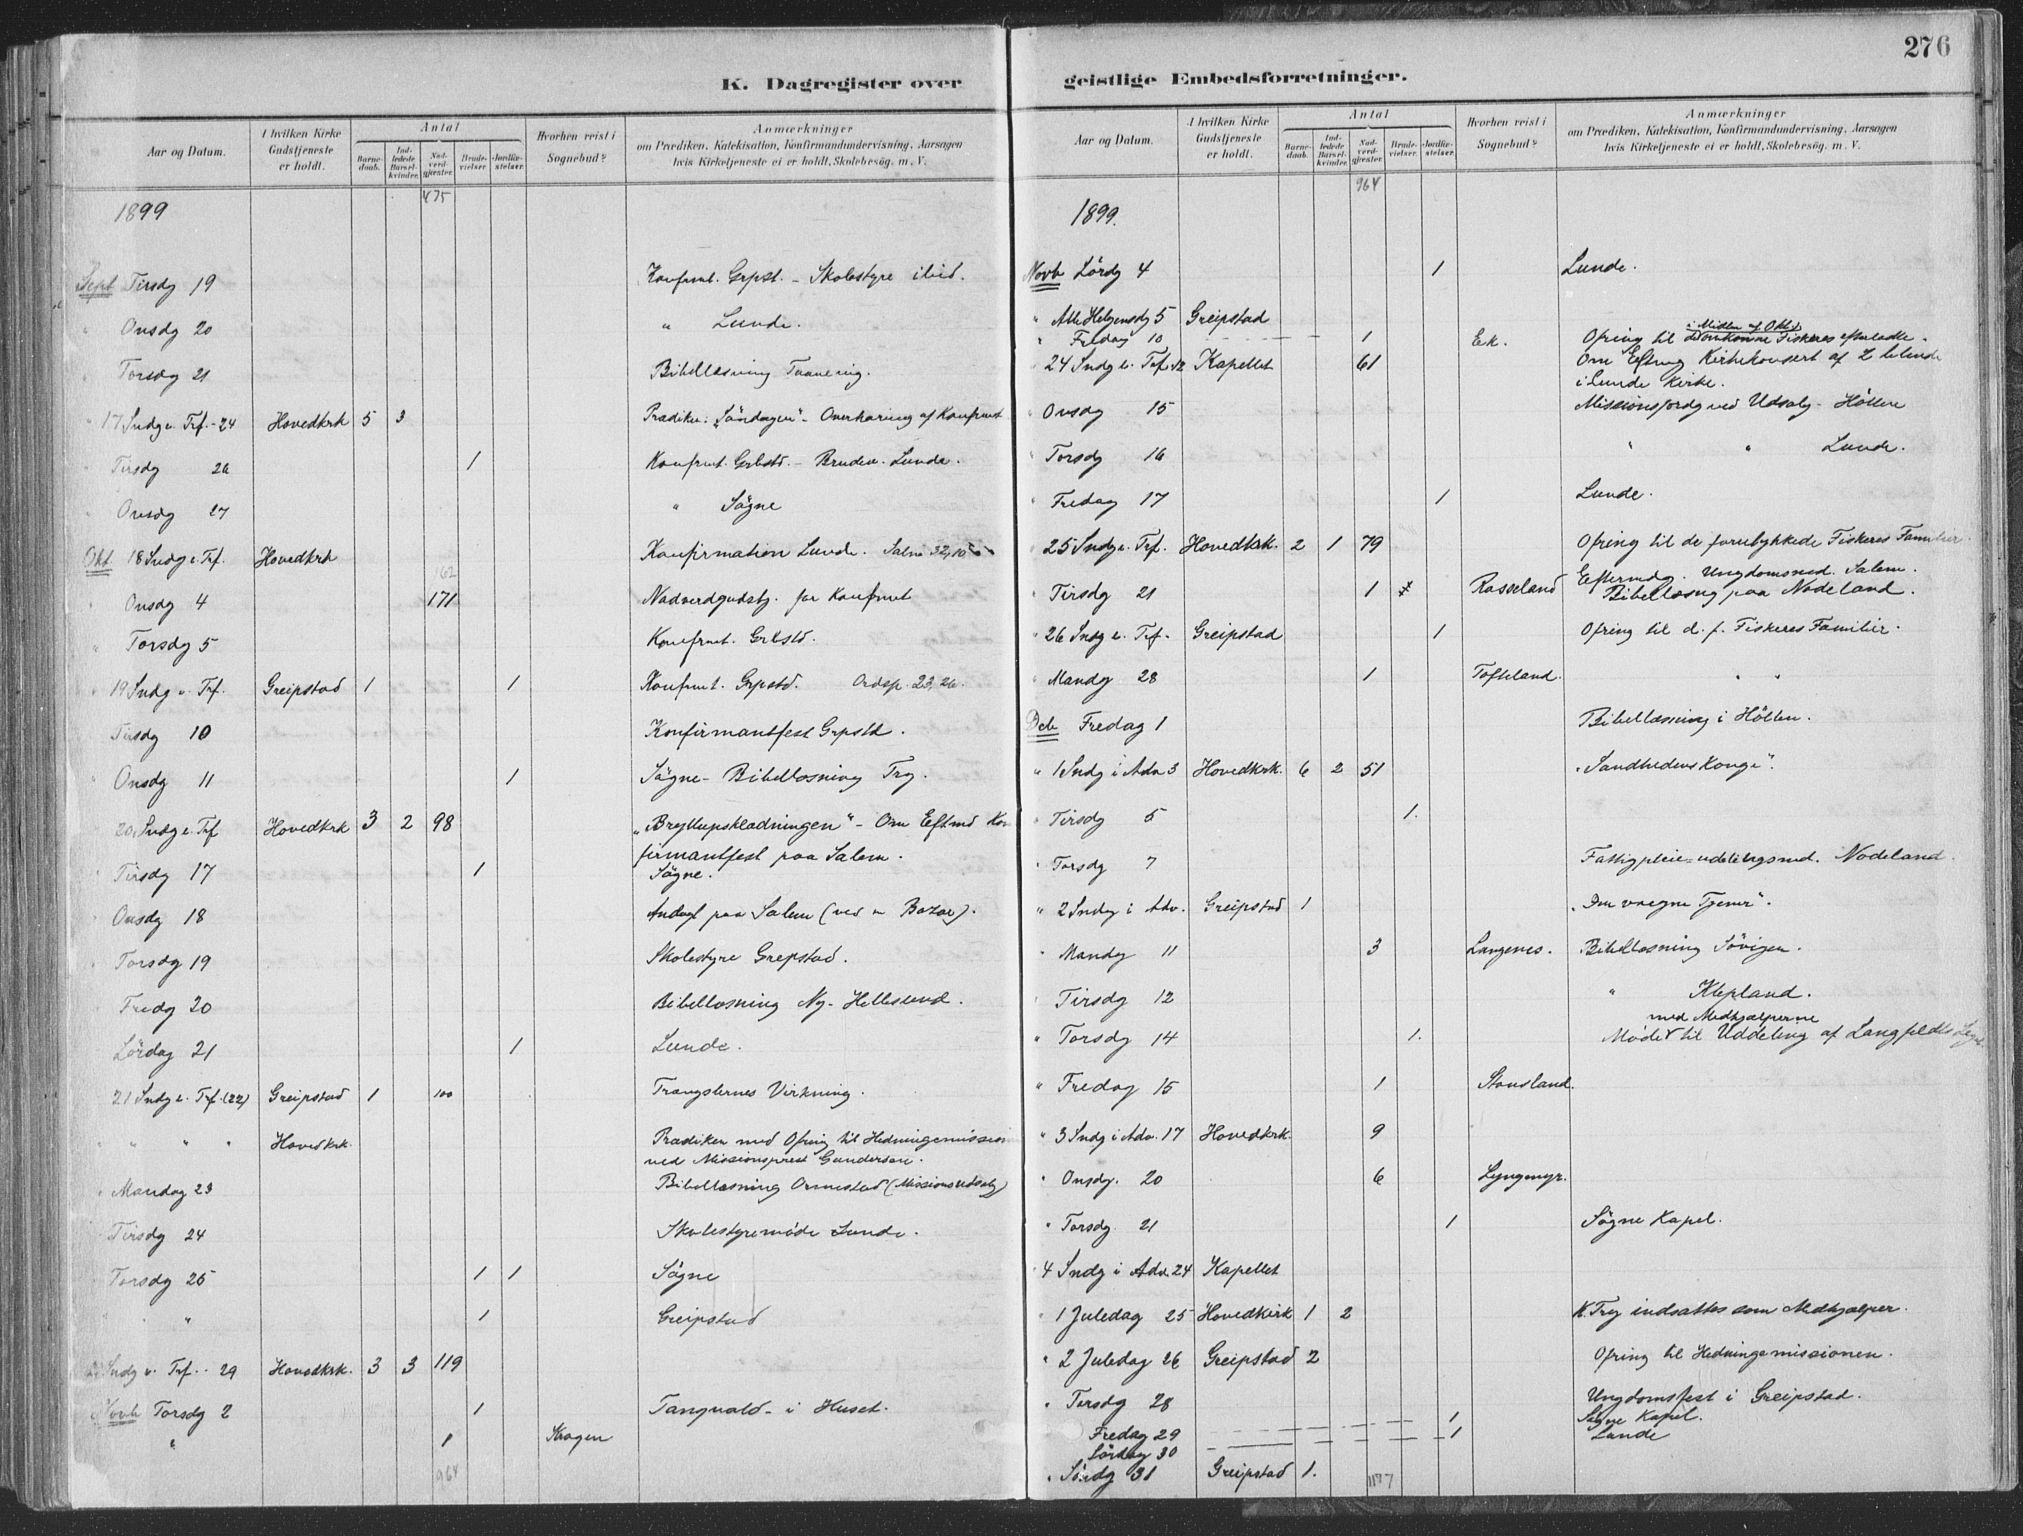 276
K. Dagregister over geistlige Embedsforretninger.
Aar og Datum. I hvilken Kirke Gudstjeneste er holdt. Antal Barnedaab. Indledede Barselkvinder. Nadverdgjæster. Brudevielser. Jordfæstelser. Hvorhen reist i Sognebud? Anmærkninger om Prædiken, Katekisation, Konfirmandundervisning, Aarsagen hvis Kirketjeneste ei er holdt, Skolebesög. m. V.
475
1899
Sept Tirsdg 19 Konfrmt. Grpst. - Skolestyre ibid.
" Onsdg 20 " Lunde.
" Torsdg 21 Bibellæsning
" 17 Sndg e. Trf. - 24 Hovedkrk 5 3 Prædiken: "Söndagen" - Overhöring af Konfrmt
" Tirsdg 26 1 Konfrmt. Grbstd. - Brudev. Lunde.
" Onsdg 27 " Sögne
Okt 18 Sndg e. Trf. Hovedkrk Konfirmation Lunde. Salme 32,10
162
" Onsdg 4 171 Nadverdgudstj. for Konfrmt
" Torsdg 5 Konfrmt. Grbstd.
" 19 Sndg e. Trf. Greipstad 1 1 Konfrmt. Grpstd. Ordsp. 23,26.
Tirsdg 10 Konfirmantfest Grpstd.
" Onsdg 11 1 Sögne - Bibellæsning Try.
20 Sndg e. Trf Hovedkrk 3 2 98 "Bryllupsklædningen" - Om Eftmd Kon
firmantfest paa Salem.
" Tirsdg 17 1 Sögne.
Onsdg 18 Andagt paa Salem (ved en Bazar).
" Torsdg 19 Skolestyre Grepstad.
" Fredg 20 Bibellæsning Ny-Hellesund.
" Lördag 21 1 Lunde.
21 Sndg e. Trf. (22) Greipstad 1 100 Trængslernes Virkning.
" " " " Hovedkrk. Prædiken med Ofring til Hedningemission
ved Missionsprest Gundersen.
" Mandag 23 Bibellæsning Ormestad (Missionsudsalg)
" Tirsdg 24 Skolestyremöde Lunde.
" Torsdg 26 1 1 Sögne
" 1 Greipstad
Sndg e. Trf. - 29 Hovedkrk. 3 3 119
Novb Torsdg 2 1 Tangvald - i Huset.
" 1 Skogen
964
Aar og Datum. I hvilken Kirke Gudstjeneste er holdt. Antal Barnedaab. Indledede Barselkvinder. Nadverdgjæster. Brudevielser. Jordfæstelser. Hvorhen reist i Sognebud? Anmærkninger om Prædiken, Katekisation, Konfirmandundervisning, Aarsagen hvis Kirketjeneste ei er holdt, Skolebesög. m. V.
964
1899.
Novb Lördg 4 1 Lunde.
" Alle Helgensdg 5 Greipstad
" Fredag 10 1 Eek. Ofring til i Midten af Okt. omkomne Fiskeres efterladte.
" 24 Sndg e. Trf. 12 Kapellet 61 Om Eftmg Kirkekonsert af 2 blinde
i Lunde Kirke.
" Onsdg 15 Missionsfordg ved Udsalg - Höllen
" Torsdg 16 " " Lunde.
" Fredag 17 1 Lunde.
" 25 Sndg e. Trf. Hovedkrk. 2 1 79 Ofring til de forulykkede Fiskeres Familier.
Eftermdg. Ungdomsmd. Salem.
" Tirsdg 21 1 Rosseland Bibellæsng paa Nodeland.
" 26 Sndg e. Trf. Greipstad 1 Ofring til d. f. Fiskeres Familier.
" Mandg 28 1 Tofteland. " "
Dcb Fredag 1 Bibellæsning i Höllen.
" 1 Sndg i Adv 3 Hovedkrk. 6 2 51 "Sandhedens Konge".
" Tirsdg 5 1.
" Torsdg 7 Fattigpleie-udelingsmd. Nodeland.
" 2 Sndg i Adv. Greipstad 1 "Den vaagne Tjener".
" Mandg 11 3 Langenes. Bibellæsning Jövigen.
" Tirsdg 12 " Klepland.
med Medhjælperne
" Torsdg 14 1. Möde til Uddeling af Langfeldts Legat
" Fredag 15 1 Stousland.
" 3 Sndg i Adv. 17 Hovedkrk. 9
" Onsdg. 20 6 Lyngmyr.
" Torsdg. 21 1 Sögne Kapel.
" 4 Sndg i Adv. 24 Kapellet
" 1 Juledag 25 Hovedkirk 1 2 K. Try indsattes som Medhjælper.
" 2 Juledag 26 Greipstad 2 Ofring til Hedningemissionen.
" Torsdg 28 Ungdomsfest i Greipstad.
Fredag 29 1 Sögne Kapel.
Lördag 30 1 Lunde
" Söndg 31 Greipstad 1.
1177